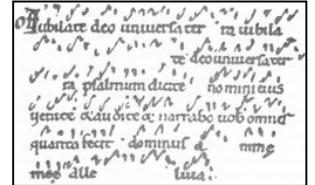 Iubilate deo uniuersa ter ra iubila
te deo uniuersa ter
ra psalmum dicite nomini eius
uenite & audite & narrabo uobis omnis
quanta fecit dominus
alle luia